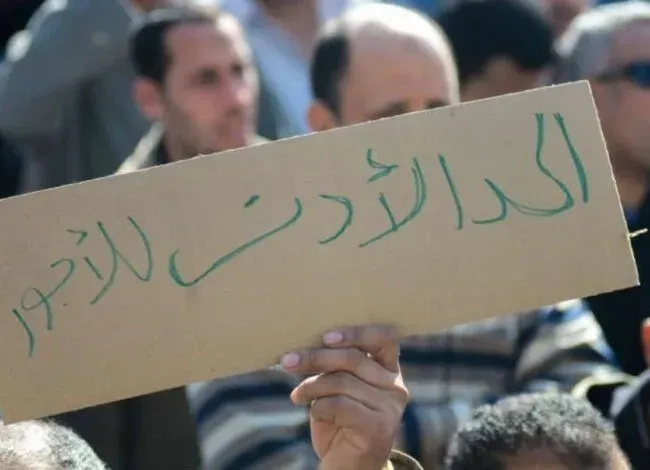 الحد الأدنى للأجور